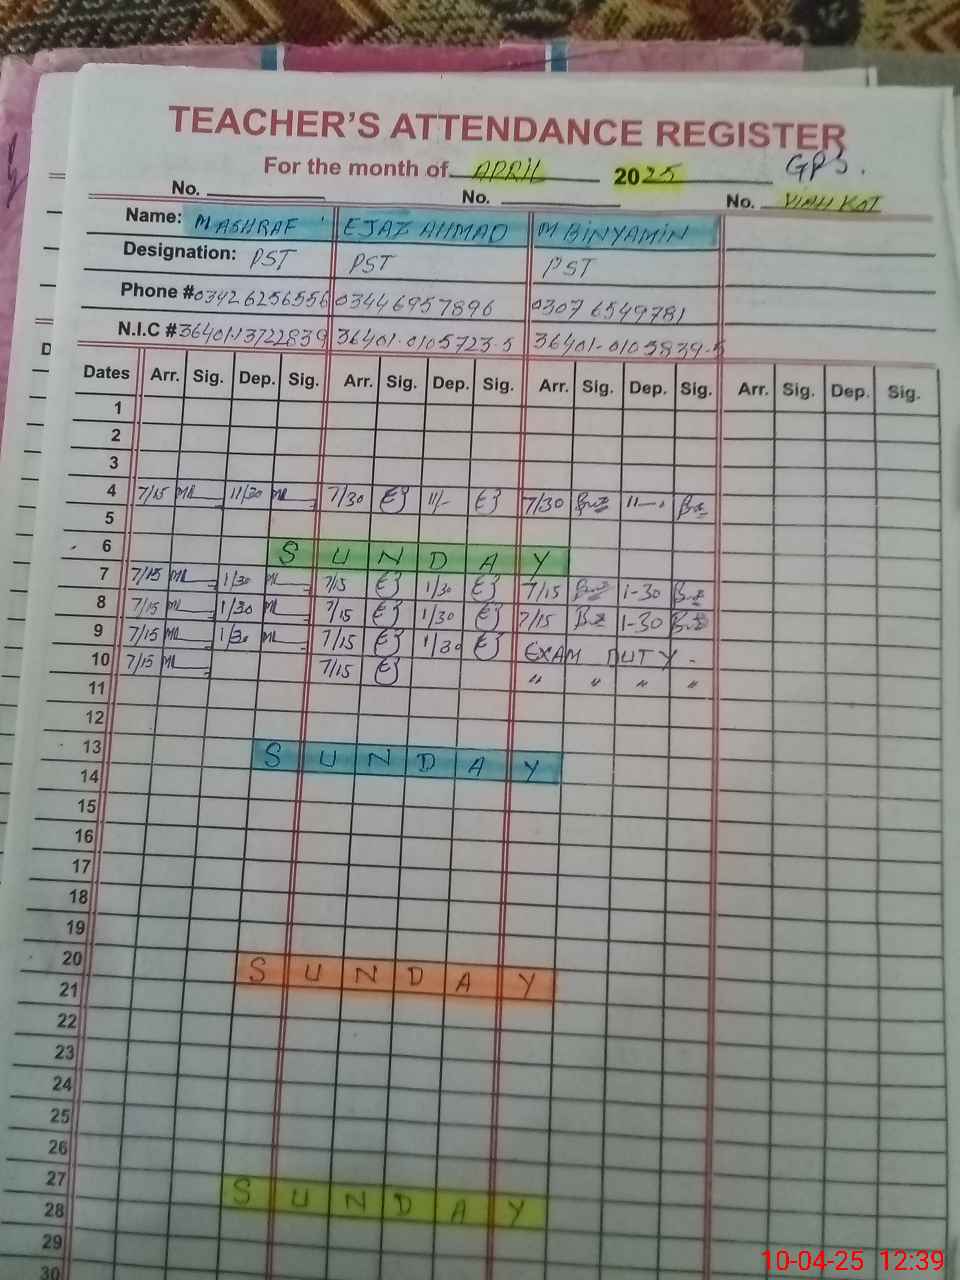 TEACHER'S ATTENDANCE REGISTER
For the month of APRIL 2025 GPS.
No. No. No. KOT
Name: M ASHRAF EJAZ AHMAD M BINYAMIN
Designation: PST PST PST
Phone # 03426256556 03446957896 0307 6549781
N.I.C # 36401-13722839 36401-0105723-5 36401-0105839-5
Dates Arr. Sig. Dep. Sig. Arr. Sig. Dep. Sig. Arr. Sig. Dep. Sig. Arr. Sig. Dep. Sig.
1
2
3
4 7/15 11/30 7/30 11/- 7/30 11-.
5
6 SUNDAY
7 7/15 1/30 7/15 1/30 7/15 1-30
8 7/15 1/30 7/15 1/30 7/15 1-30
9 7/15 1/30 7/15 1/30 EXAM DUTY -
10 7/15 7/15 " " " "
11
12
13 SUNDAY
14
15
16
17
18
19
20 SUNDAY
21
22
23
24
25
26
27 SUNDAY
28
29
30
10-04-25 12:39